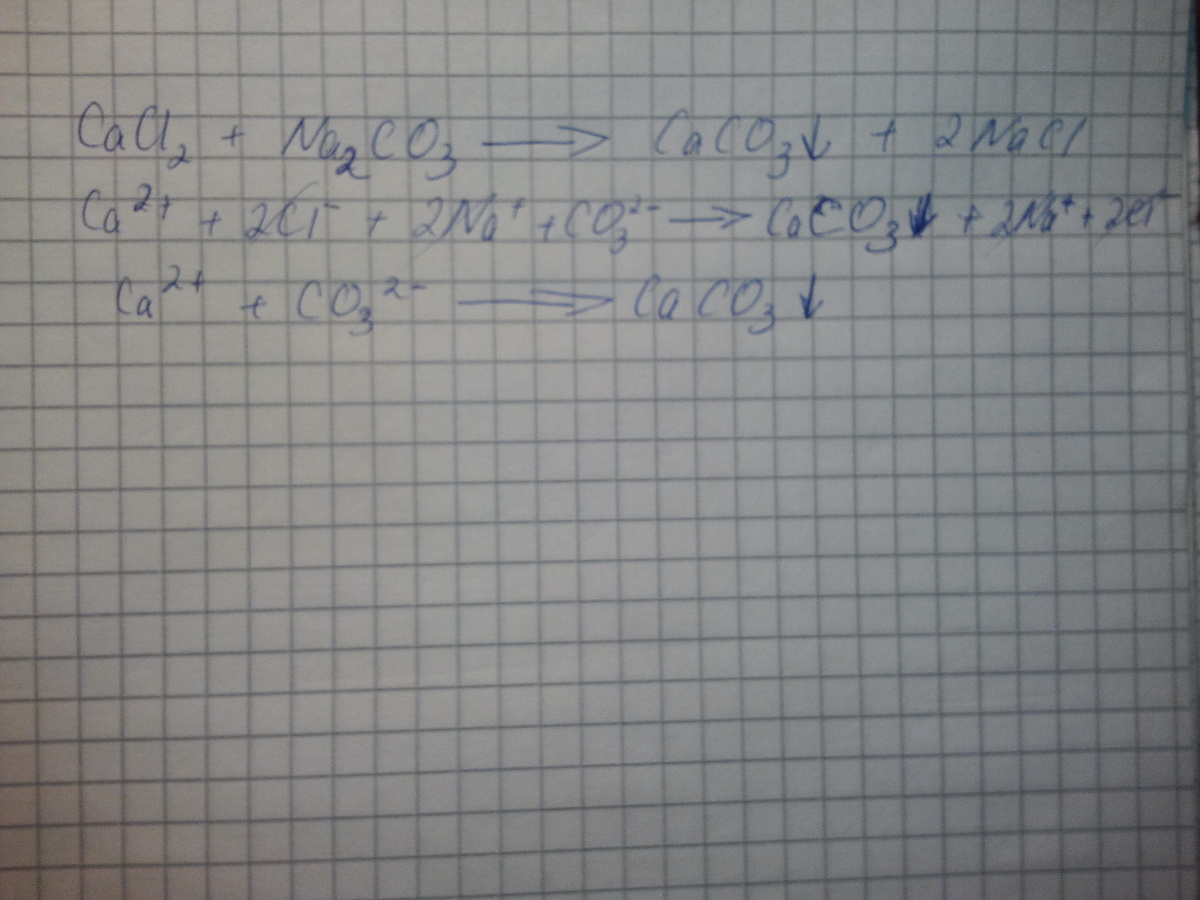 CaCl₂ + Na₂CO₃ ⟶ CaCO₃↓ + 2NaCl
Ca²⁺ + 2Cl⁻ + 2Na⁺ + CO₃²⁻ ⟶ CaCO₃↓ + 2Na⁺ + 2Cl⁻
Ca²⁺ + CO₃²⁻ ⟶ CaCO₃↓